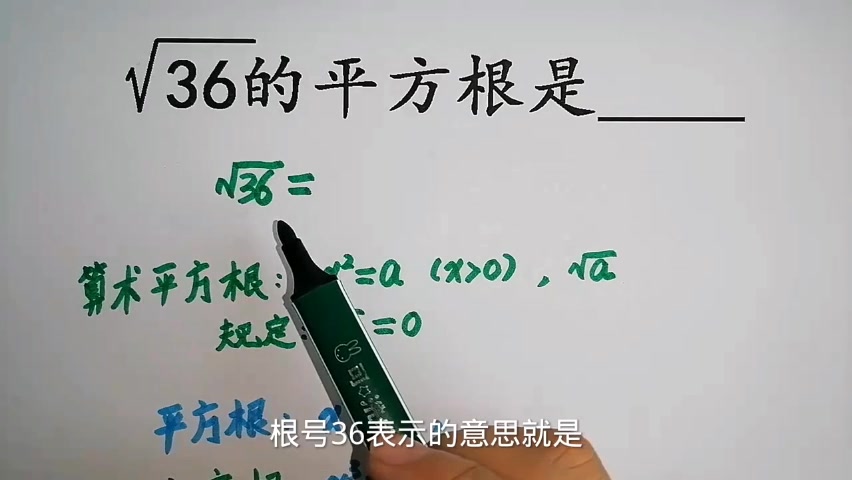 √36的平方根是______
√36=
算术平方根: x²=a (x>0), √a
规定: =0
平方根:
根号36表示的意思就是